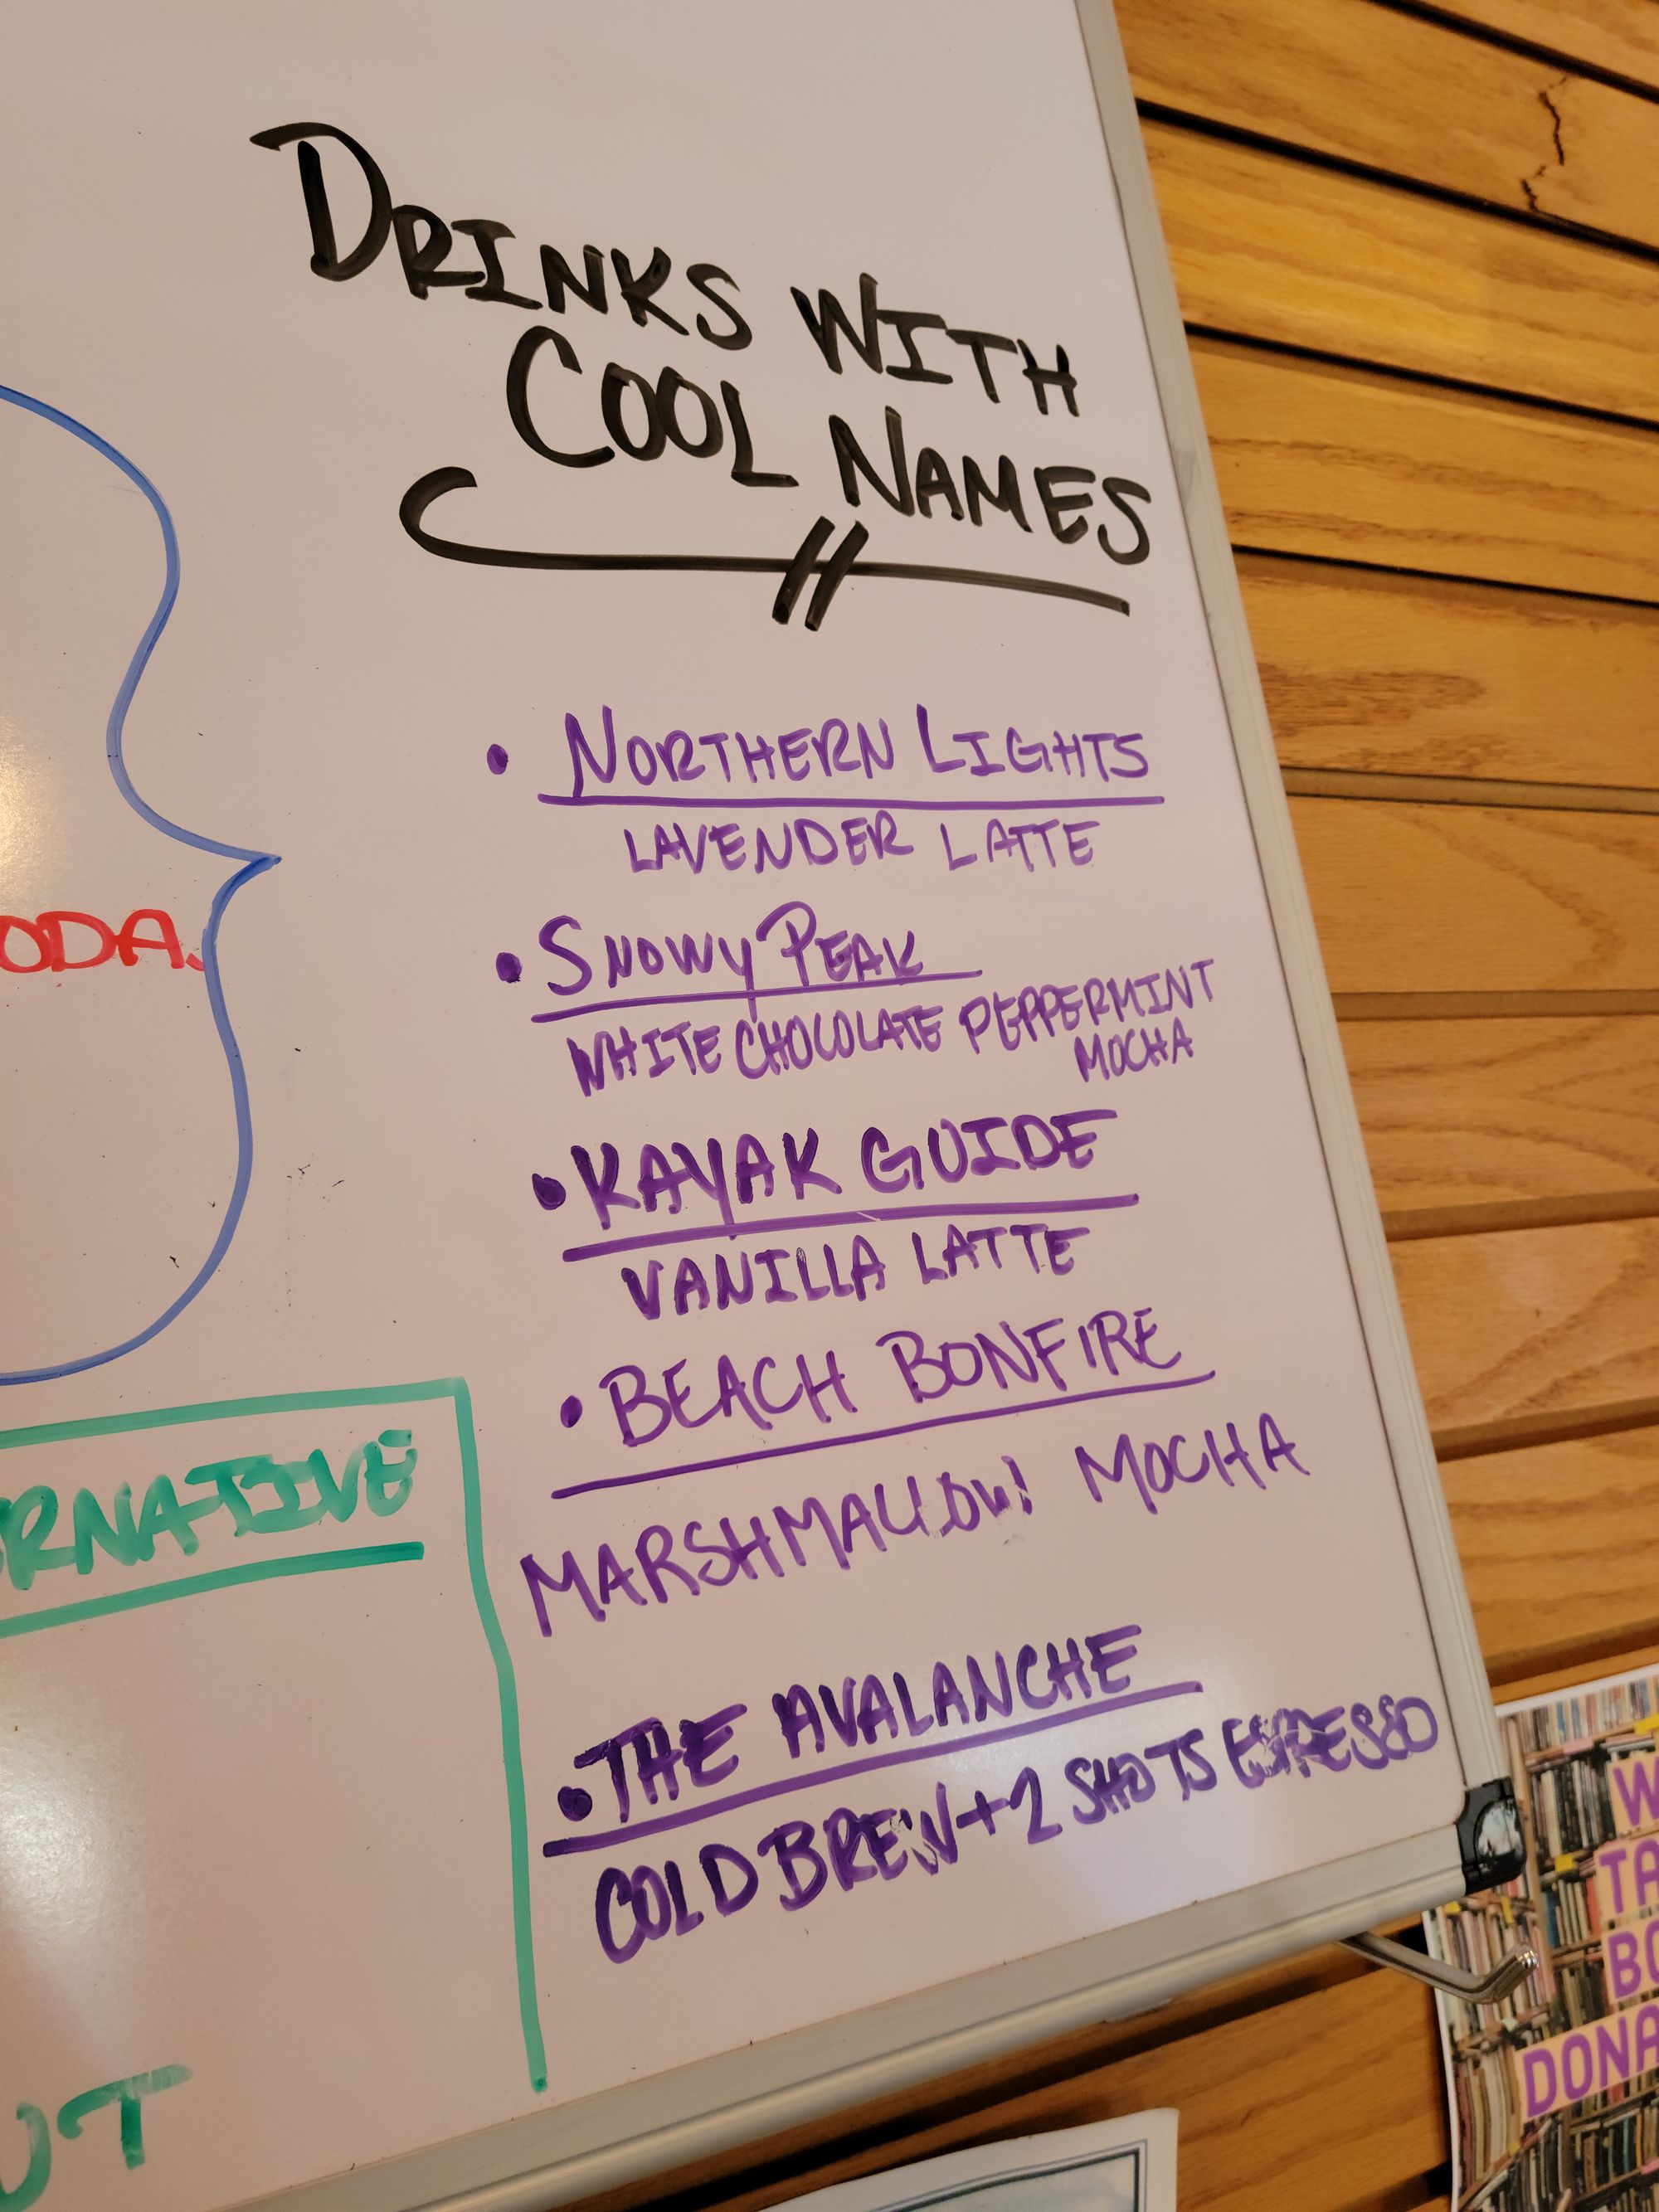 DRINKS WITH
COOL NAMES
• NORTHERN LIGHTS
LAVENDER LATTE
• SNOWY PEAK
WHITE CHOCOLATE PEPPERMINT
MOCHA
• KAYAK GUIDE
VANILLA LATTE
• BEACH BONFIRE
MARSHMALLOW! MOCHA
• THE AVALANCHE
COLD BREW + 2 SHOTS ESPRESSO
ODA
RNATIVE
UT
W
TA
BO
DONA